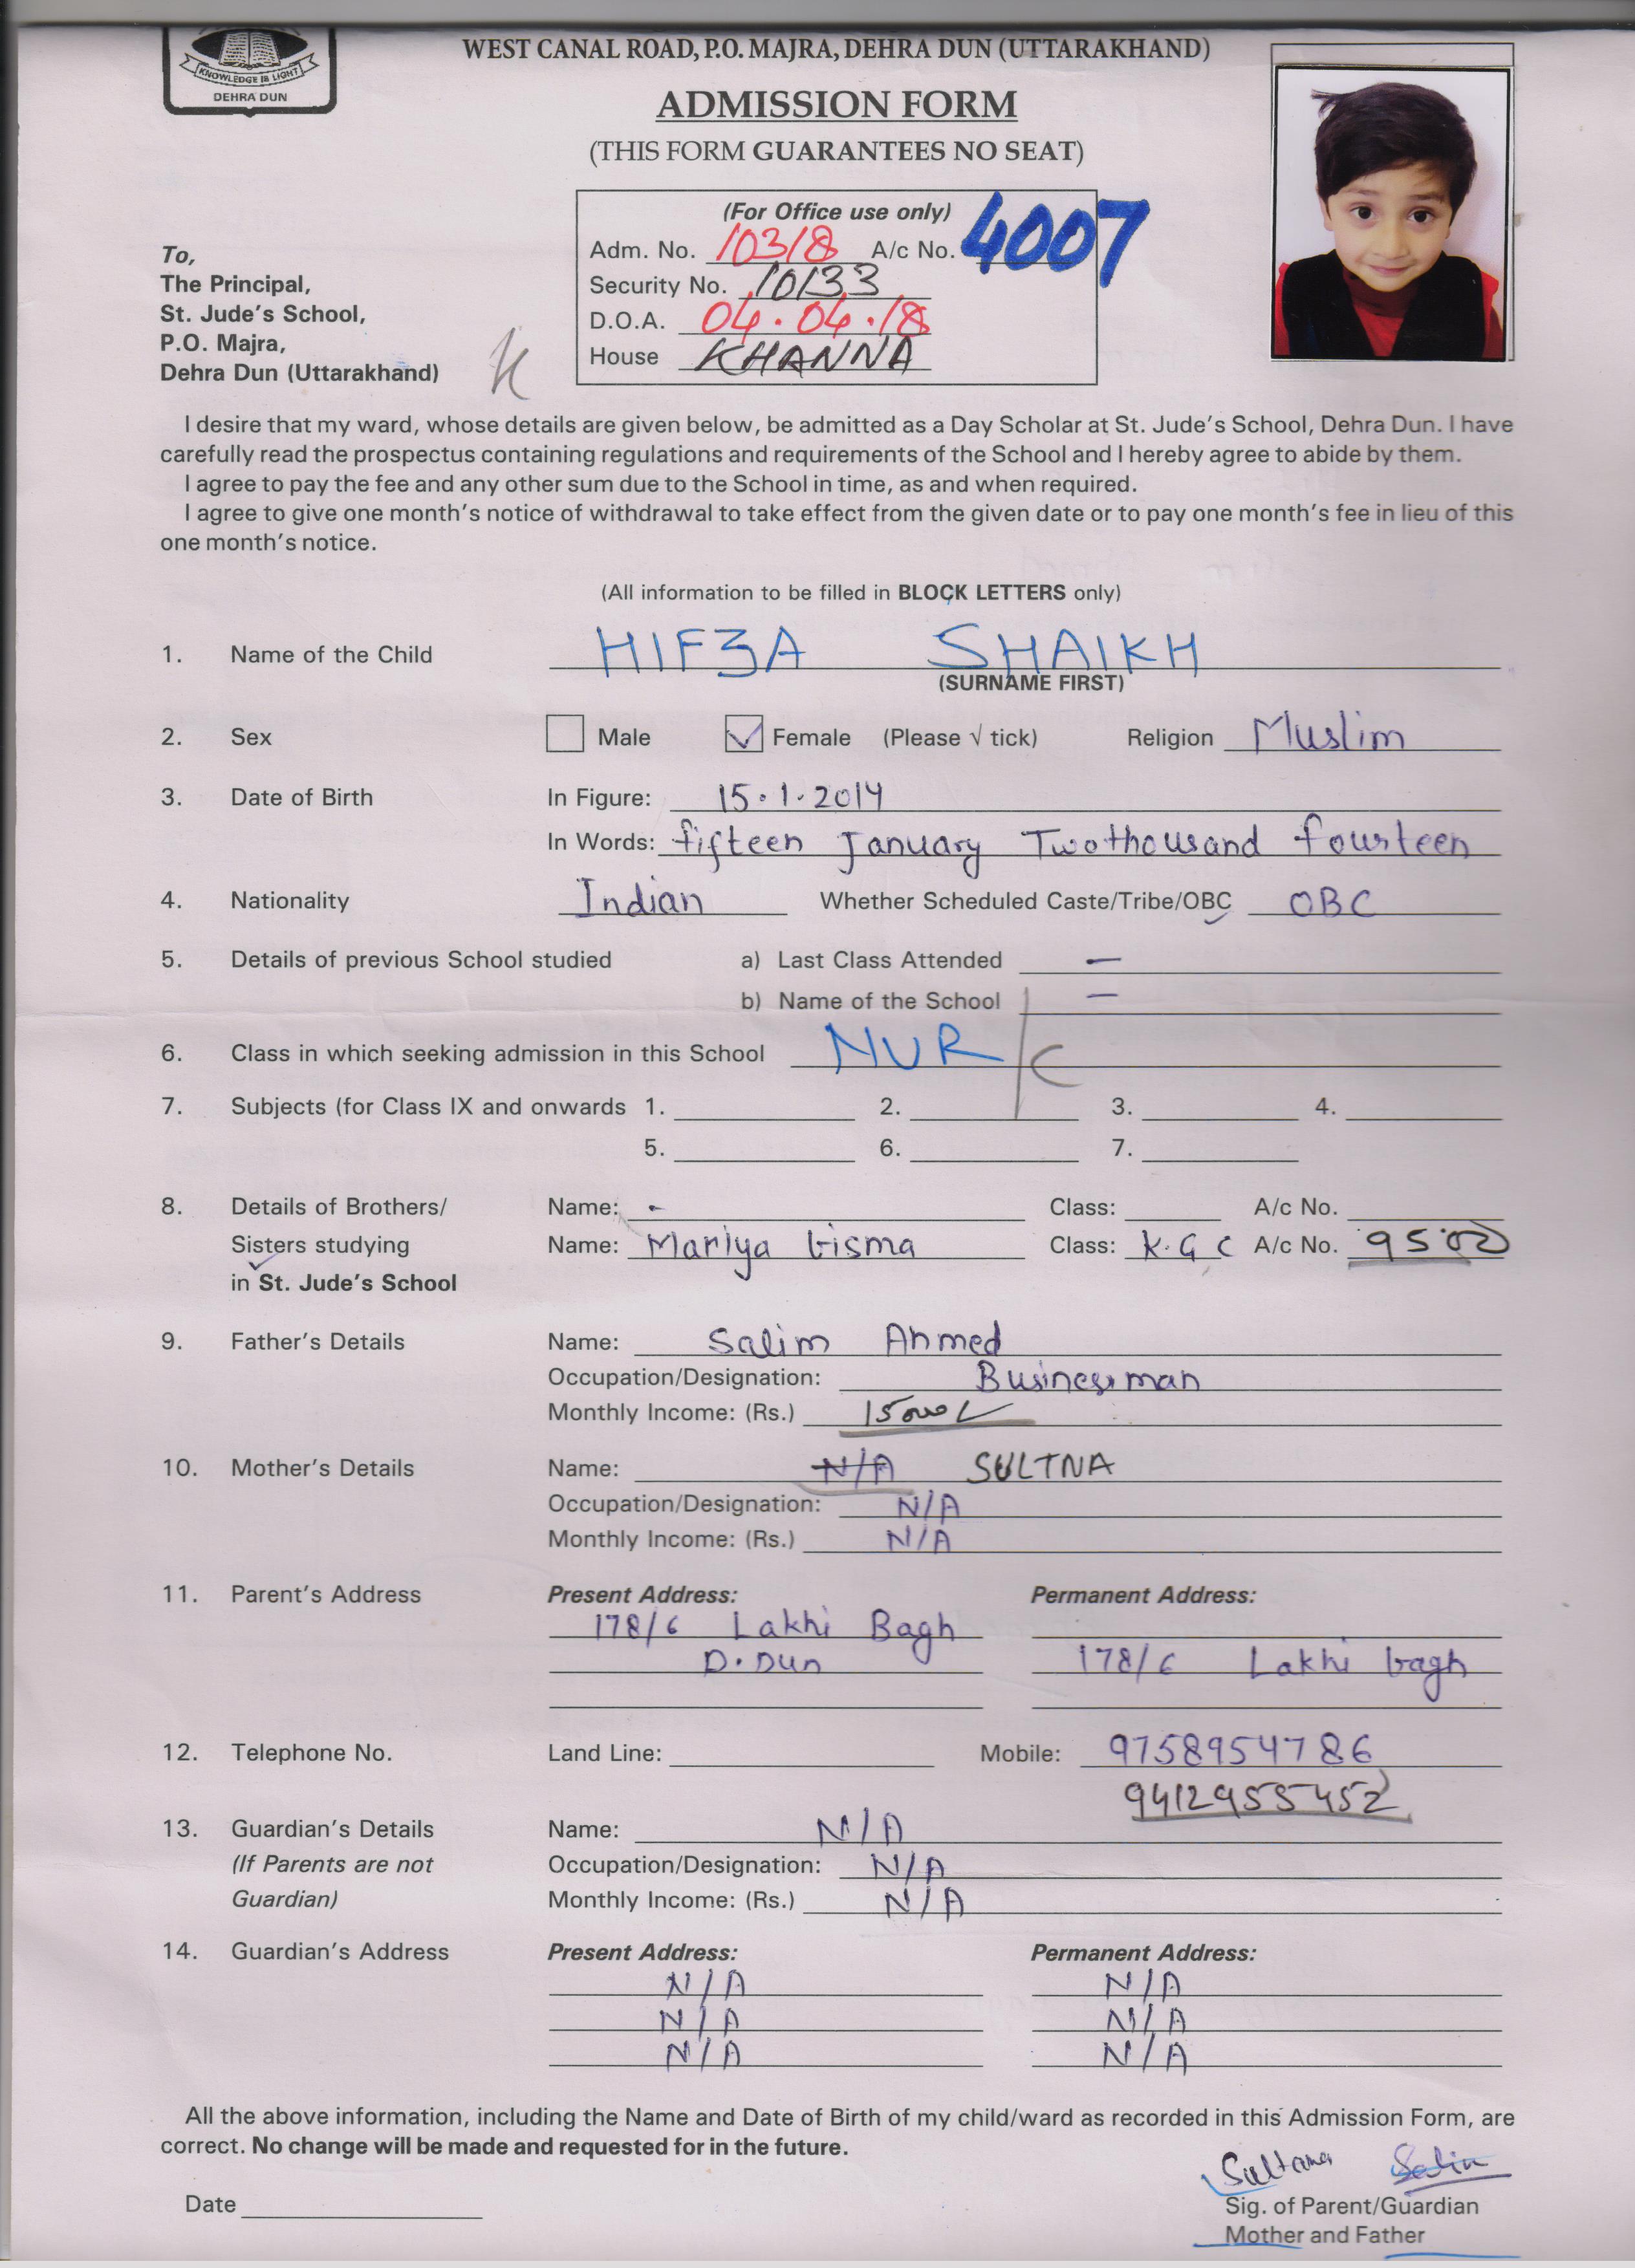 KNOWLEDGE IS LIGHT
DEHRA DUN
WEST CANAL ROAD, P.O. MAJRA, DEHRA DUN (UTTARAKHAND)
ADMISSION FORM
(THIS FORM GUARANTEES NO SEAT)
(For Office use only)
Adm. No. 10318 A/c No. 4007
Security No. 10133
D.O.A. 04.04.18
House KHANNA
To,
The Principal,
St. Jude's School,
P.O. Majra,
Dehra Dun (Uttarakhand)
I desire that my ward, whose details are given below, be admitted as a Day Scholar at St. Jude's School, Dehra Dun. I have
carefully read the prospectus containing regulations and requirements of the School and I hereby agree to abide by them.
I agree to pay the fee and any other sum due to the School in time, as and when required.
I agree to give one month's notice of withdrawal to take effect from the given date or to pay one month's fee in lieu of this
one month's notice.
(All information to be filled in BLOCK LETTERS only)
1. Name of the Child HIFZA SHAIKH
(SURNAME FIRST)
2. Sex Male Female (Please √ tick) Religion Muslim
3. Date of Birth In Figure: 15.1.2014
In Words: fifteen January Twothousand fourteen
4. Nationality Indian Whether Scheduled Caste/Tribe/OBC OBC
5. Details of previous School studied a) Last Class Attended —
b) Name of the School —
6. Class in which seeking admission in this School NUR / C
7. Subjects (for Class IX and onwards 1. 2. 3. 4.
5. 6. 7.
8. Details of Brothers/ Name: - Class: A/c No.
Sisters studying Name: Mariya bisma Class: K.G C A/c No. 9500
in St. Jude's School
9. Father's Details Name: Salim Ahmed
Occupation/Designation: Businessman
Monthly Income: (Rs.) 15000/
10. Mother's Details Name: N/A SULTNA
Occupation/Designation: N/A
Monthly Income: (Rs.) N/A
11. Parent's Address Present Address: Permanent Address:
178/6 Lakhi Bagh
D.Dun 178/6 Lakhi bagh
12. Telephone No. Land Line: Mobile: 9758954786
9412955452
13. Guardian's Details Name: N/A
(If Parents are not Occupation/Designation: N/A
Guardian) Monthly Income: (Rs.) N/A
14. Guardian's Address Present Address: Permanent Address:
N/A N/A
N/A N/A
N/A N/A
All the above information, including the Name and Date of Birth of my child/ward as recorded in this Admission Form, are
correct. No change will be made and requested for in the future.
Sultana Salim
Date Sig. of Parent/Guardian
Mother and Father